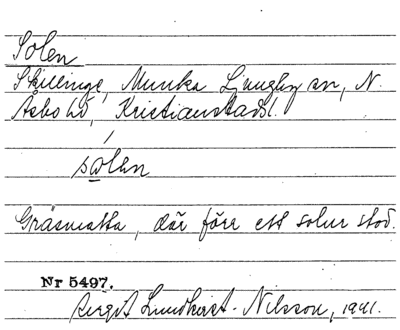 Solen
Skillinge, Munka Ljungby sn, N.
Åsbo hd, Kristianstadsl.
solen
Gräsmatta, där förr ett solur stod.
Nr 5497.
Birgit Lundkvist-Nilsson, 1941.